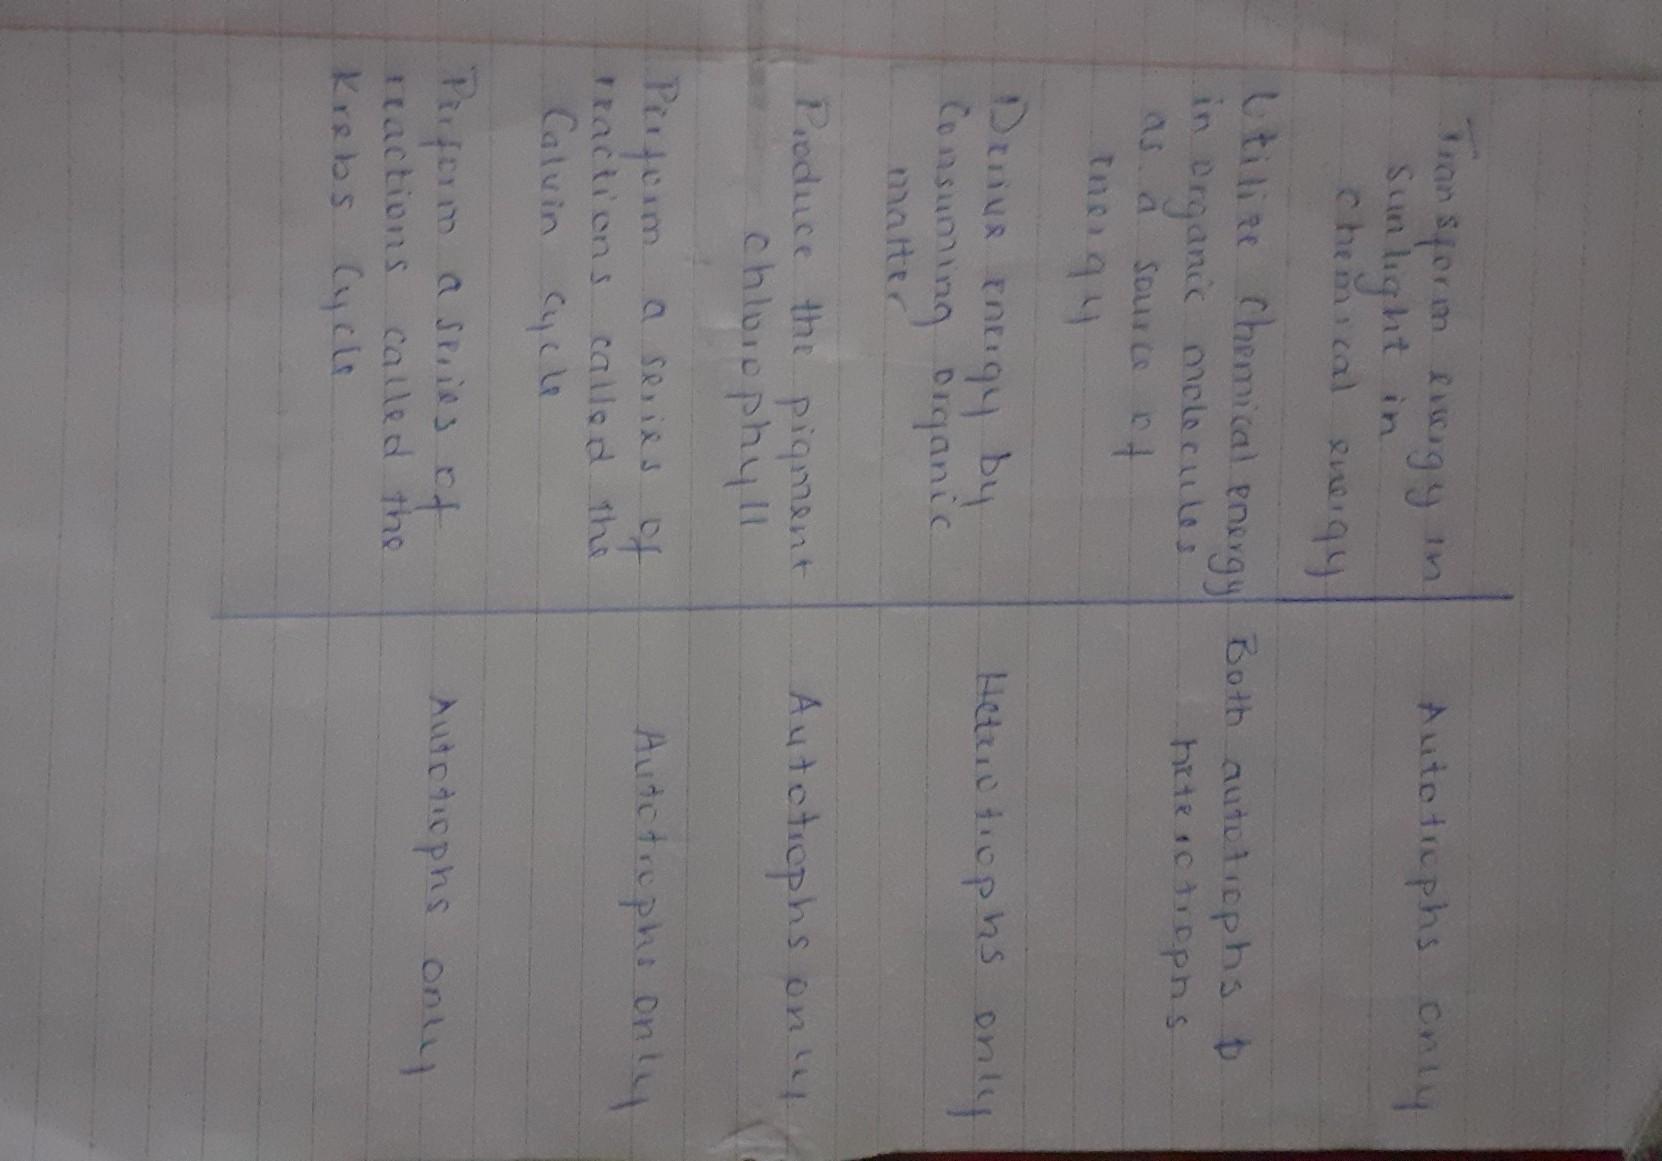 Transform energy in
Sunlight in
chemical energy
Autotrophs only
Utilize chemical energy
in organic molecules
as a source of
energy
Both autotrophs &
heterotrophs
Derive energy by
Consuming organic
matter
Heterotrophs only
Produce the pigment
chlorophyll
Autotrophs only
Perform a series of
reactions called the
Calvin cycle
Autotrophs only
Perform a series of
reactions called the
Krebs Cycle
Autotrophs only